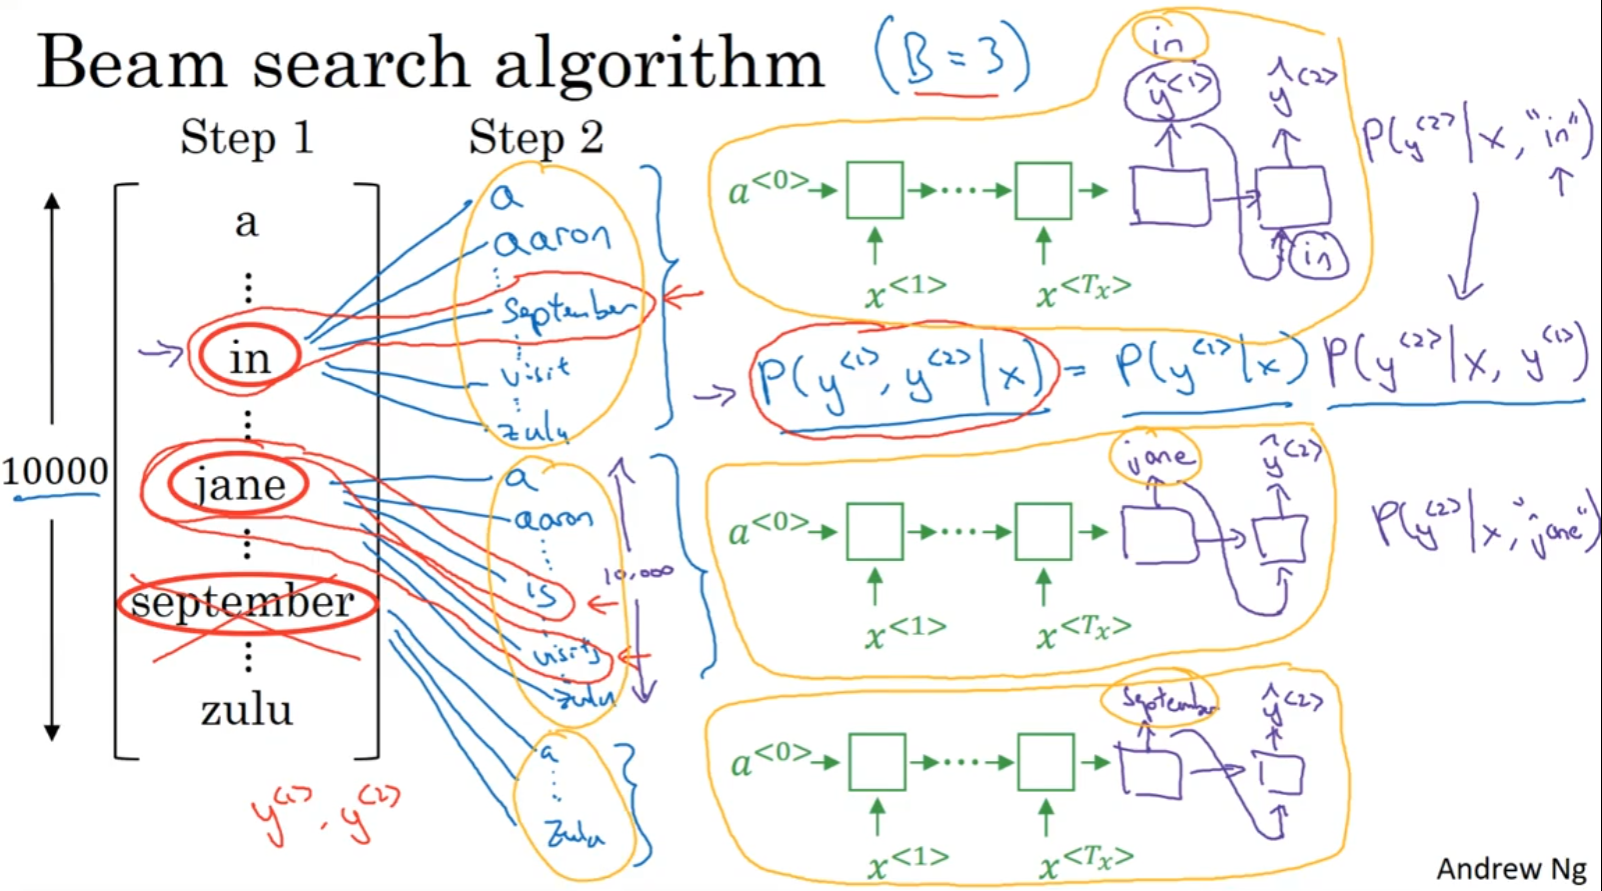 Beam search algorithm (B = 3)
Step 1
Step 2
10000
a
⋮
in
⋮
jane
⋮
september
⋮
zulu
y<1>, y<2>
a
aaron
⋮
September
⋮
visit
⋮
zulu
a
aaron
⋮
is
⋮
visits
⋮
zulu
10,000
a
⋮
zulu
in
ŷ<1> ŷ<2>
a<0> ⋯
x<1> x<Tx>
in
P(y<2>|x, "in")
P(y<1>, y<2>|x) = P(y<1>|x) P(y<2>|x, y<1>)
jane ŷ<2>
a<0> ⋯
x<1> x<Tx>
P(y<2>|x, "jane")
September ŷ<2>
a<0> ⋯
x<1> x<Tx>
Andrew Ng